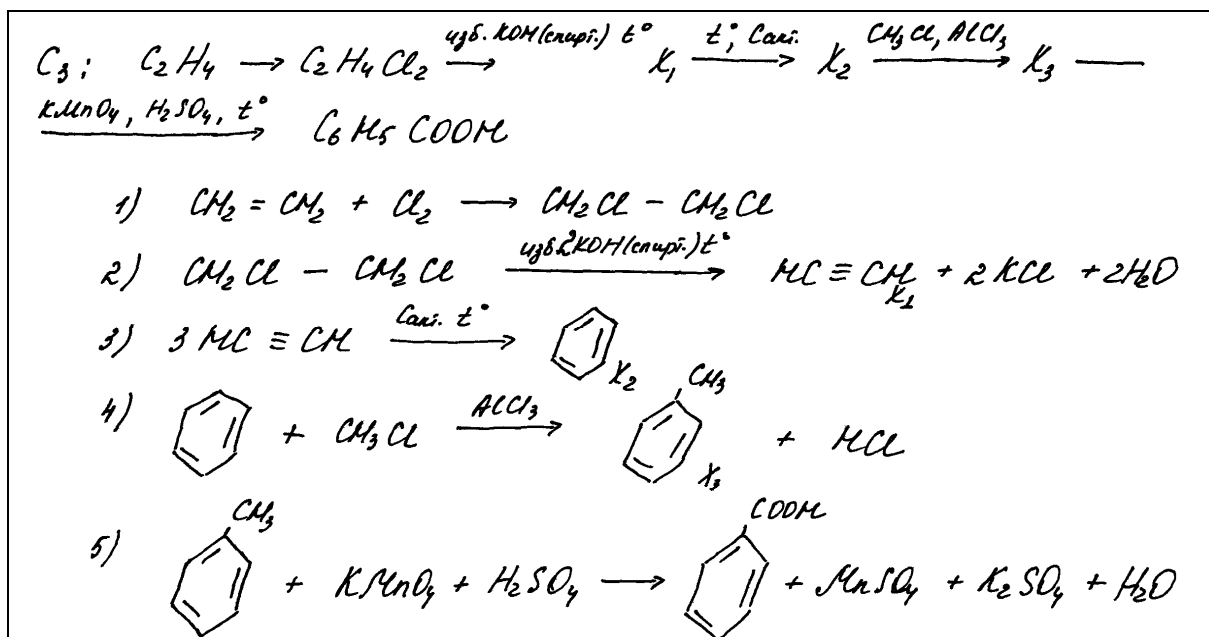 C3: C2H4 → C2H4Cl2 изб. KOH(спирт.) t° → X1 t°, Cакт. → X2 CH3Cl, AlCl3 → X3 —
KMnO4, H2SO4, t° → C6H5COOH
1) CH2 = CH2 + Cl2 → CH2Cl – CH2Cl
2) CH2Cl – CH2Cl изб 2KOH(спирт.) t° → HC ≡ CH + 2KCl + 2H2O
X1
3) 3HC ≡ CH Cакт. t° → X2
4) + CH3Cl AlCl3 → CH3 X3 + HCl
5) CH3 + KMnO4 + H2SO4 → COOH + MnSO4 + K2SO4 + H2O